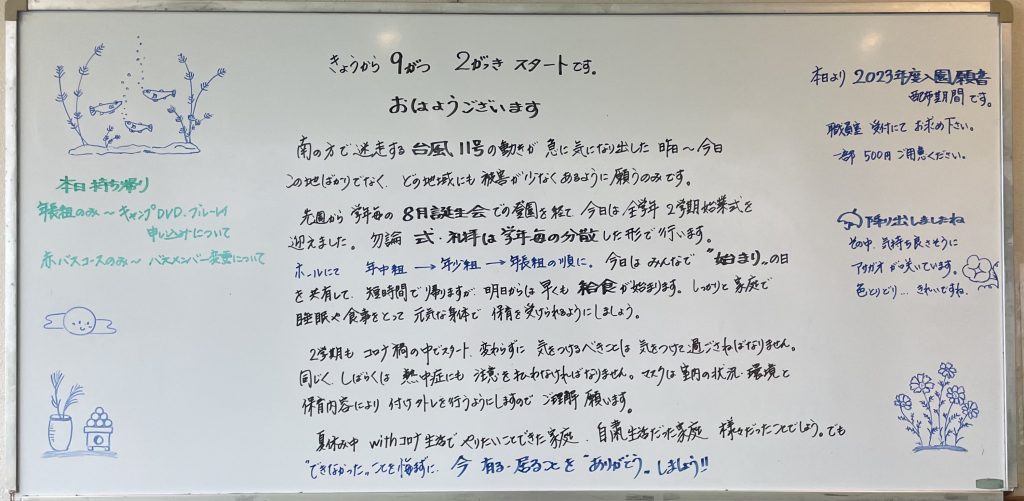 きょうから 9がつ 2がっき スタートです。
おはようございます
南の方で迷走する 台風11号の動きが 急に気になり出した 昨日～今日
この地ばかりでなく、どの地域にも 被害が少なくあるように 願うのみです。
先週から 学年毎の 8月誕生会での登園を経て 今日は、全学年 2学期始業式を
迎えました。 勿論 式・礼拝は 学年毎の分散した形で行います。
ホールにて 年中組 → 年少組 → 年長組の順に。 今日は みんなで "始まり"の日
を共有して、 短時間で帰りますが、明日からは 早くも 給食が始まります。 しっかりと 家庭で
睡眠や食事をとって 元気な身体で 保育を受けられるようにしましょう。
2学期も コロナ禍の中でスタート、変わらずに 気をつけるべきことは 気をつけて過ごさねばなりません。
同じく、しばらくは 熱中症にも 注意を払わなければなりません。マスクは室内の状況・環境と
保育内容により 付け外しを行うようにしますので ご理解 願います。
夏休み中 withコロナ生活で やりたいことできた家庭、自粛生活だった家庭 様々だったことでしょう。でも
"できなかった"ことを悔まずに、今 有る・居ることを "ありがとう"しましょう!!
本日持ち帰り
年長組のみ～キャンプDVD・ブルーレイ
申し込みについて
赤バスコースのみ～バスメンバー変更について
本日より 2023年度入園願書
配布期間です。
職員室 受付にて お求め下さい。
一部 500円ご用意ください。
降り出しましたね
その中、気持ち良さそうに
アサガオが咲いています。
色とりどり… きれいですね。